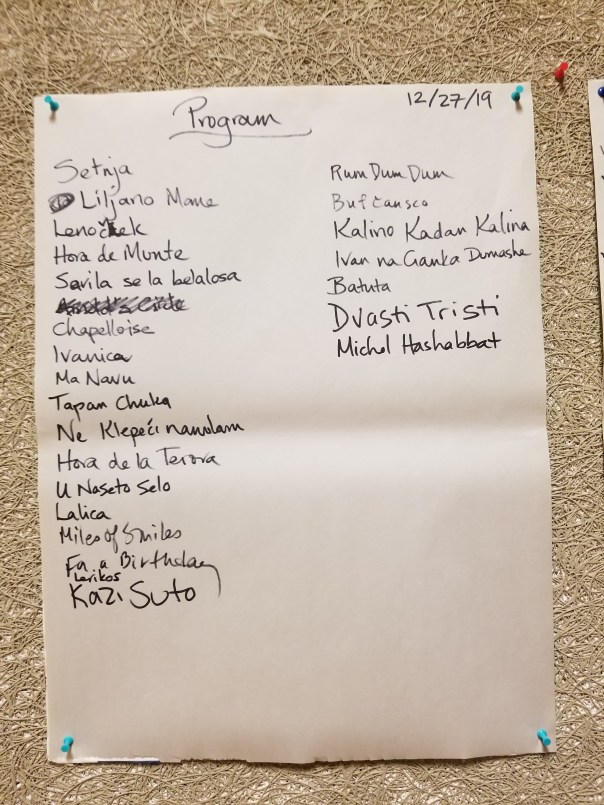 Program
12/27/19
Setnja
Liljano Mome
Lenoček
Hora de Munte
Savila se la belalosa
Chapelloise
Ivanica
Ma Navu
Tapan Chuka
Ne Klepeći nanulam
Hora de la Terova
U Naseto Selo
Lalica
Miles of Smiles
Fa a Birthday
Lerikos
Kazi Suto
Rum Dum Dum
Bufčansco
Kalino Kadan Kalina
Ivan na Ganka Dumashe
Batuta
Dvasti Tristi
Michol Hashabbat